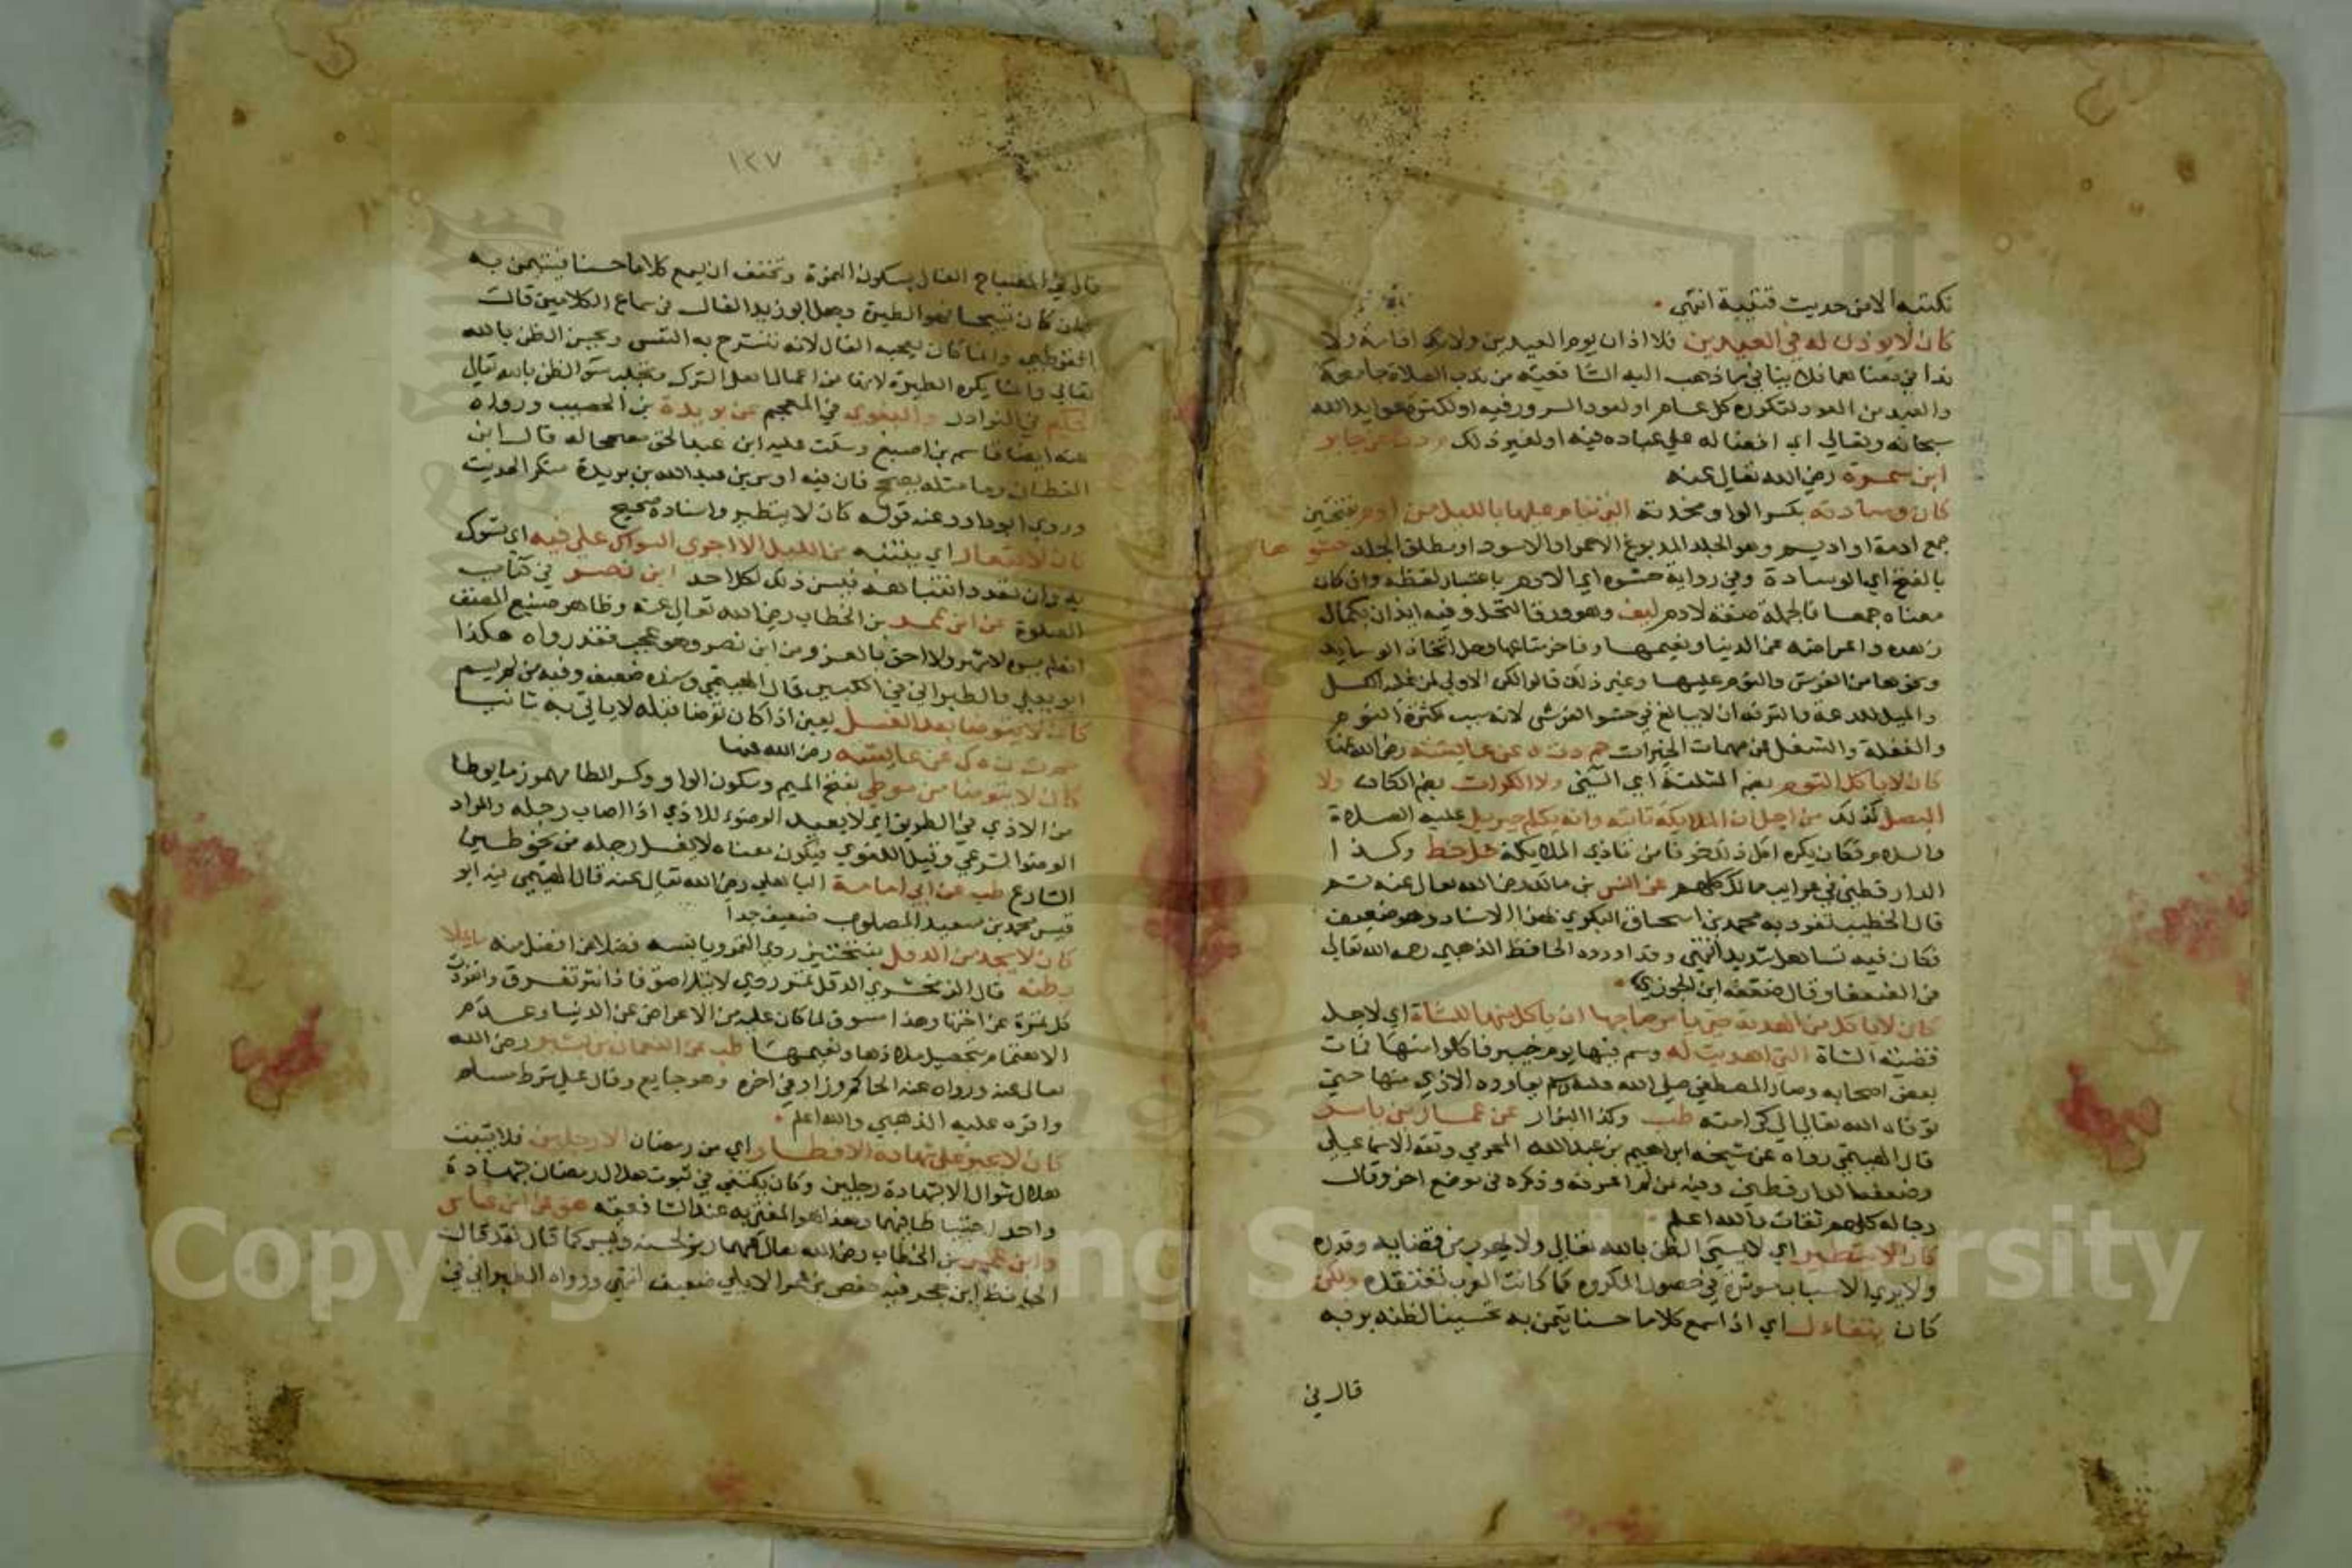 نكتبه الا من حديث قتيبة انتهى
كان لا يوذن له في العيدين فلا اذان يوم العيدين ولا اقامة ولا
ندا في معناهما فلا ينافي ما ذهب اليه الشافعية من ندب الصلاة جامعة
والعيد من العود لتكرره كل عام او لعود السرور فيه او لكثرة عوايد الله
سبحانه وتعالى اي افضاله على عباده فيه او لغير ذلك م د ت عن جابر
ابن سمرة رضي الله تعالى عنه
كان وسادته بكسر الواو مخدته التي ينام عليها بالليل من ادم بفتحتين
جمع ادمة او اديم وهو الجلد المدبوغ الاحمر او الاسود او مطلق الجلد حشوها
بالفتح اي الوسادة وفي رواية حشوه اي الادم باعتبار لفظه وان كان
معناه جمعا فالجملة صفة لادم ليف وهو ورق النخل وفيه ايذان بكمال
زهده واعراضه عن الدنيا ونعيمها وفاخر متاعها وحل اتخاذ الوسايد
ونحوها من الفرش والنوم عليها وغير ذلك قالوا لكن الاولى لمن غلبه الكسل
والميل للدعة والترفه ان لا يبالغ في حشو الفرش لانه سبب كثرة النوم
والغفلة والشغل عن مهمات الخيرات حم د ت ه عن عايشة رضي الله عنها
كان لا ياكل الثوم بضم المثلثة اي النيئ ولا الكراث بضم الكاف ولا
البصل كذلك من اجل ان الملايكة تاتيه وانه يكلم جبريل عليه الصلاة
والسلام فكان يكره اكل ذلك خوفا من تاذي الملايكة حل خط وكذا
الدارقطني في غرايب مالك كلهم عن انس بن مالك رضي الله تعالى عنه ثم
قال الخطيب تفرد به محمد بن اسحاق البكري بهذا الاسناد وهو ضعيف
فكان فيه تساهل شديد انتهى وقد اورده الحافظ الذهبي رحمه الله تعالى
في الضعفا وقال ضعفه ابن الجوزي
كان لا ياكل من الهدية حتى يامر صاحبها ان ياكل منها للشاة اي لاجل
قضية الشاة التي اهديت له وسم فيها يوم خيبر فاكلوا منها فمات
بعض اصحابه وصار المصطفى صلى الله عليه وسلم يعاوده الاذي منها حتى
توفاه الله تعالى الى كرامته طب وكذا البزار عن عمار بن ياسر
قال الهيثمي رواه عن شيخه ابراهيم بن عبد الله المخرمي وثقه الاسماعيلي
وضعفه الدارقطني وفيه من لم اعرفه وذكره في موضع اخر وقال
رجاله كلهم ثقات والله اعلم
كان لا يتطير اي لا يسيئ الظن بالله تعالى ولا يهرب من قضايه وقدره
ولا يري الاسباب موثرة في حصول المكروه كما كانت العرب تعتقده ولكن
كان يتفاءل اي اذا سمع كلاما حسنا تيمن به تحسينا لظنه بربه
قال في
١٣٧
قال في المصباح الفال بسكون الهمزة وتخفف ان يسمع كلاما حسنا فيتيمن به
فان كان قبيحا فهو الطيرة وجعل ابو زيد الفال في سماع الكلامين قالت
القرطبي وانما كان يعجبه الفال لانه تنشرح به النفس ويحسن الظن بالله
تعالى وانما يكره الطيرة لانها من اعمال اهل الشرك وتجلب سؤ الظن بالله تعالى
الحكيم في النوادر والبغوي في المعجم عن بريدة بن الحصيب ورواه
عنه ايضا قاسم بن اصبغ وسكت عليه ابن عبد الحق مصححا له قال ابن
القطان وما مثله يصحح فان فيه اوس بن عبد الله بن بريدة منكر الحديث
وروي ابو داود عنه قوله كان لا يتطير واسناده صحيح
كان لا يتعار اي ينتبه من الليل الا اجري السواك على فيه اي تسوك
به وان تعدد انتباهه فيسن ذلك لكل احد ابن نصر في كتاب
الصلوة عن ابن عمر بن الخطاب رضي الله تعالى عنه وظاهر صنيع المصنف
انه لم يره لاشهر ولا احق بالعزو من ابن نصر وهو عجب فقد رواه هكذا
ابو يعلي والطبراني في الكبير قال الهيثمي وسنده ضعيف وفيه من لم يسم
كان لا يتوضا بعد الغسل يعني اذا كان توضا قبله لا ياتي به ثانيا
حم ت ن ه ك عن عايشة رضي الله عنها
كان لا يتوضا من موطي بفتح الميم وسكون الواو وكسر الطا مهموز ما يوطا
من الاذي في الطريق اي لا يعيد الوضوء للاذي اذا اصاب رجله والمراد
الوضوا الشرعي وقيل اللغوي فيكون معناه لا يغسل رجله من نحو طين
الشارع طب عن ابي امامة الباهلي رضي الله تعالى عنه قال الهيثمي فيه ابو
قيس محمد بن سعيد المصلوب ضعيف جدا
كان لا يجد من الدقل بفتحتين ردي التمر ويابسه فضلا عن افضل منه ما يملا
بطنه قال الزمخشري الدقل تمر ردي لا يتلاصق فاذا نثر تفرق وانفردت
كل تمرة عن اختها وهذا مسوق لما كان عليه من الاعراض عن الدنيا وعدم
الاهتمام بتحصيل ملاذها ونعيمها طب عن النعمان بن بشير رضي الله
تعالى عنه ورواه عنه الحاكم وزاد في اخره وهو جايع وقال على شرط مسلم
واقره عليه الذهبي والله اعلم
كان لا يجيز على شهادة الافطار اي من رمضان الا رجلين فلا يثبت
هلال شوال الا بشهادة رجلين وكان يكتفي في ثبوت هلال رمضان بشهادة
واحد احتياطا فيهما وهذا هو المفتي به عند الشافعية هق عن ابن عباس
وابن عمر بن الخطاب رضي الله تعالى عنهما رمز لحسنه وليس كما قال فقد قالت
الحافظ ابن حجر فيه حفص بن عمر الايلي ضعيف انتهى ورواه الطبراني في
Copyright © King Saud University
1957